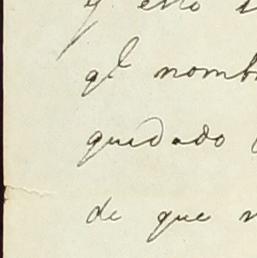 y esto
ql nomb
quedado
de que